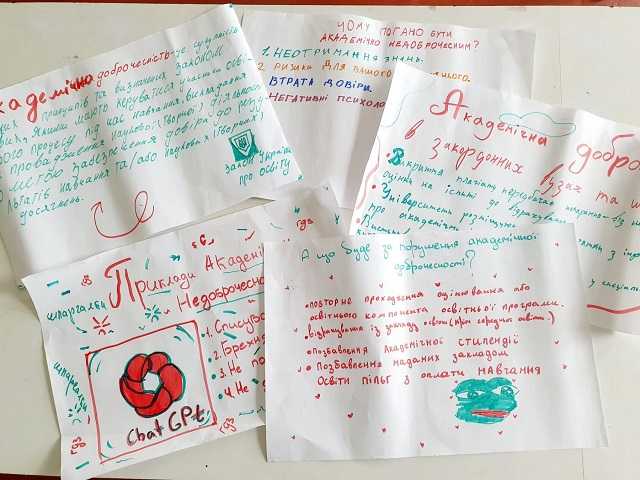 Академічна доброчесність - це сукупність
принципів та визначених законом
якими мають керуватися учасники осві-
процесу під час навчання, викладання
провадження наукової (творчої) діяльності
метою забезпечення довіри до резу-
льтатів навчання та/або наукових (творчих)
досягнень.
Закон України
про освіту
Чому погано бути
академічно недоброчесним?
1. Неотримання знань.
2. Ризики для вашого
Втрата довіри.
Негативні психоло
Академічна добро
в закордонних вузах та ш
Університети
про академічн
Приклади Академі
Недоброчесно
1. Списув
2. Брехня
3. Не
4. Не
шпаргалки
шпаргалки
гдз
гдз
гдз
Chat GPt
А що буде за порушення академічної
доброчесності?
• повторне проходження оцінювання або
освітнього компонента освітньої програми.
• відрахування із закладу освіти (крім середньої освіти)
• Позбавлення Академічної стипендії
• Позбавлення наданих закладом
Освіти пільг з оплати навчання